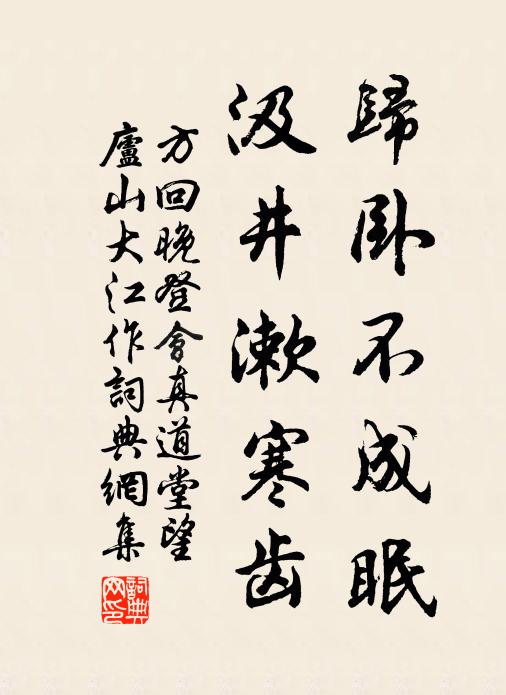 歸卧不成眠
汲井漱寒齿
方回晚登會真道堂望
廬山大江作詞典網集
詞典网印